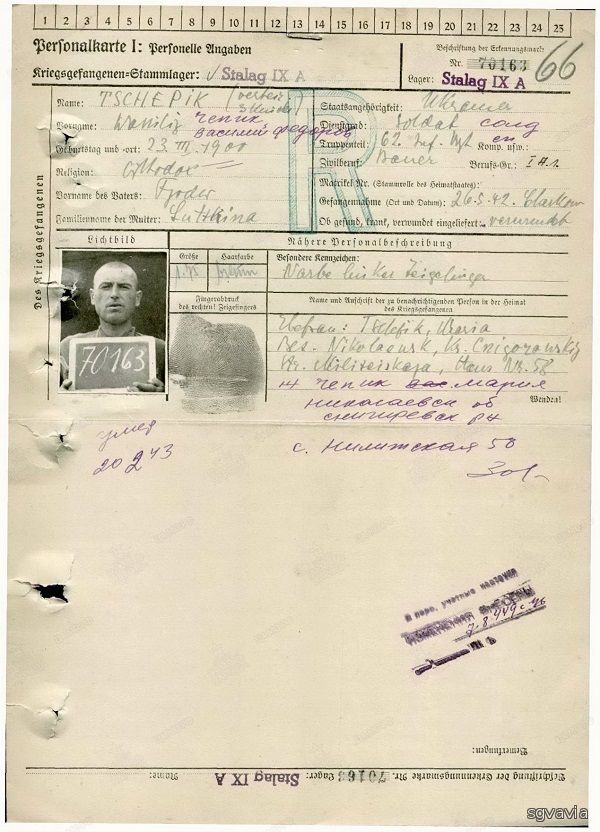 1 2 3 4 5 6 7 8 9 10 11 12 13 14 15 16 17 18 19 20 21 22 23 24 25
Personalkarte I: Personelle Angaben
Kriegsgefangenen-Stammlager: Stalag IX A
Beschriftung der Erkennungsmarke
Nr. 70163
Lager: Stalag IX A
66
Des Kriegsgefangenen
Name: TSCHEPIK
Vorname: Wassilij
Чепик
Василий Федоров
Geburtstag und -ort: 23 III. 1900
Religion: Orthodox
Vorname des Vaters: Fjodor
Familienname der Mutter:
R
Staatsangehörigkeit: Ukrainer
Dienstgrad: Soldat солд
Truppenteil: 62. Inf. Rgt Komp. usw.:
Zivilberuf: Bauer Berufs-Gr.:
Matrikel Nr. (Stammrolle des Heimatstaates):
Gefangennahme (Ort und Datum): 26.5.42. Charkow
Ob gesund, krank, verwundet eingeliefert: verwundet
Lichtbild
Nähere Personalbeschreibung
70163
Größe
Haarfarbe
1.75
Fingerabdruck
des rechten! Zeigefingers
Besondere Kennzeichen:
Narbe linker Zeigefinger
Name und Anschrift der zu benachrichtigenden Person in der Heimat
des Kriegsgefangenen
Ehefrau: Tschepik, Maria
Nikolaewsk, Kr.
Str. Militeiskaja, Haus Nr. 58
ж Чепик Мария
Николаевск об
Снигиревск рн
Wenden!
с. Милитская 58
умер
20 2 43
В перв. учетные карточки
7.8.
Bemerkungen:
Beschriftung der Erkennungsmarke Nr. 70163 Lager: Stalag IX A Name:
sgvavia